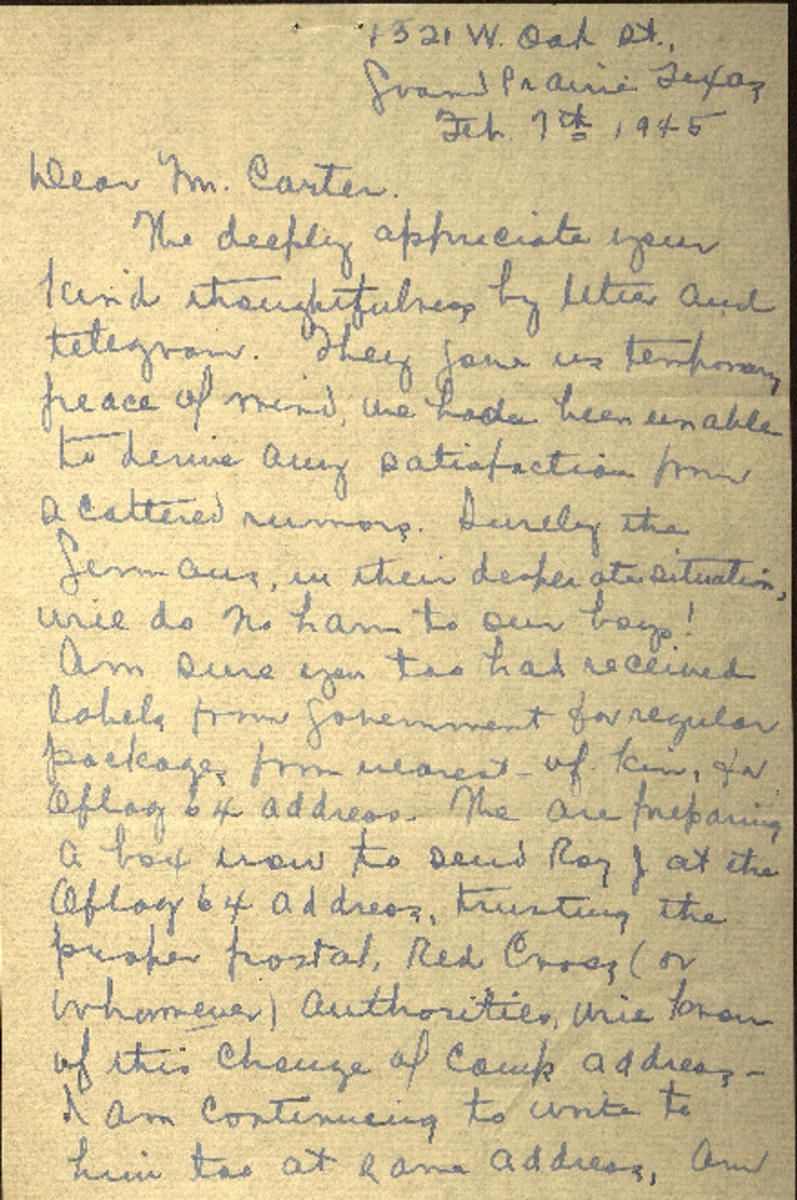 1321 W. Oak St.,
Grand Prairie Texas
Feb. 7th, 1945
Dear Mr. Carter.
We deeply appreciate your
kind thoughtfulness by letter and
telegram. They gave us temporary
peace of mind, we had been unable
to derive any satisfaction from
scattered rumors. Surely the
Germans, in their desperate situation,
will do no harm to our boys!
Am sure you too had received
labels from government for regular
packages from nearest-of-kin, for
Oflag 64 address. We are preparing
a box now to send Roy J at the
Oflag 64 address, trusting the
proper postal, Red Cross, (or
whomever) authorities, will know
of this change of camp address -
I am continuing to write to
him too at same address, am